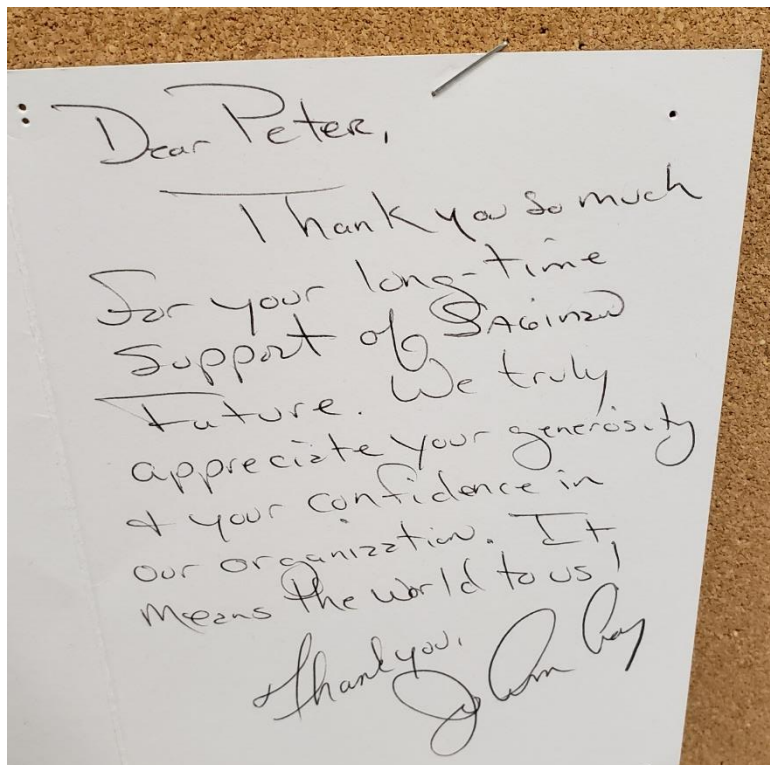 Dear Peter,
Thank you so much
For your long-time
Support of Saginaw
Future. We truly
appreciate your generosity
& your confidence in
our organization. It
means the world to us!
Thank you,
Jo Ann